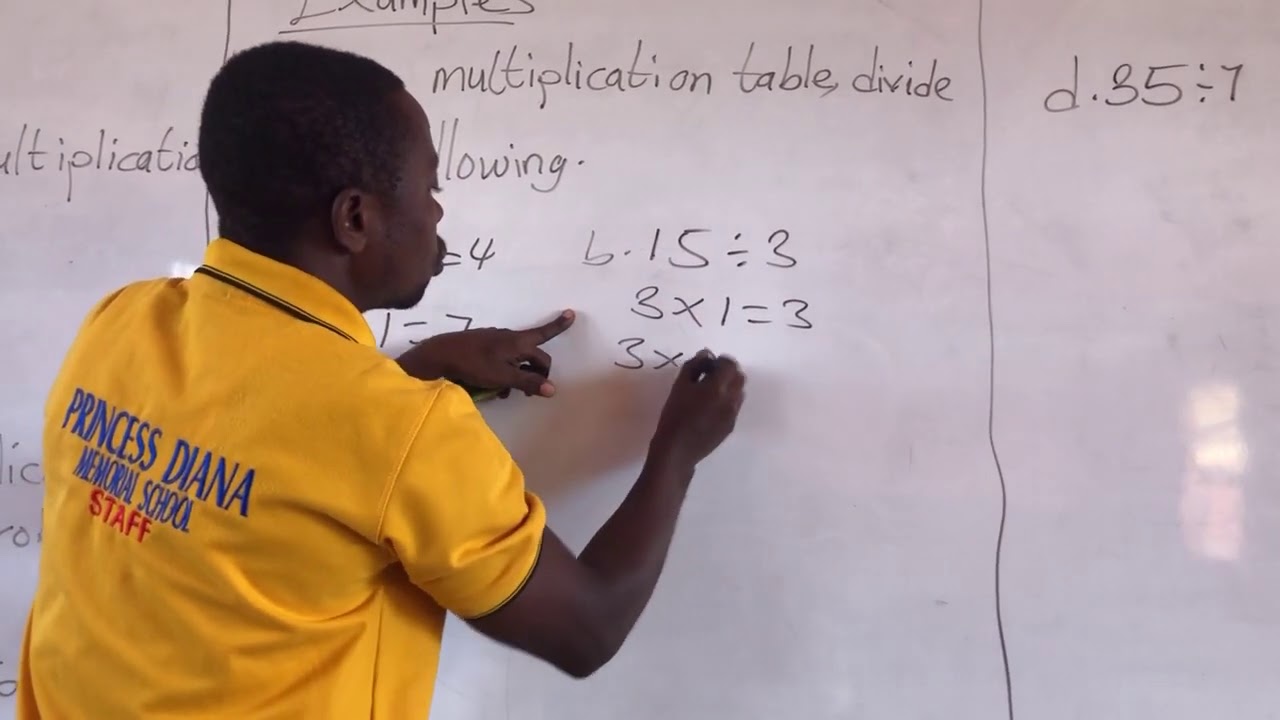 Examples
multiplication table, divide
llowing.
=4
1=7
b. 15÷3
3×1=3
3×
d. 35÷7
PRINCESS DIANA
MEMORIAL SCHOOL
STAFF